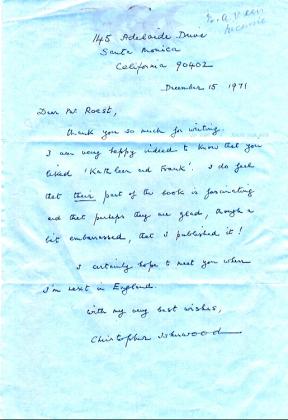 145 Adelaide Drive
Santa Monica
California 90402
December 15 1971
Dear Mr Roest,
Thank you so much for writing.
I am very happy indeed to know that you
liked 'Kathleen and Frank'. I do feel
that their part of the book is fascinating
and that perhaps they are glad, though a
bit embarrassed, that I published it!
I certainly hope to meet you when
I'm next in England.
with my very best wishes,
Christopher Isherwood